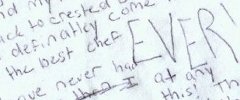 nd my
ck to crested b
definatley come
the best chef EVERY
ave never had at any
then I this! Th